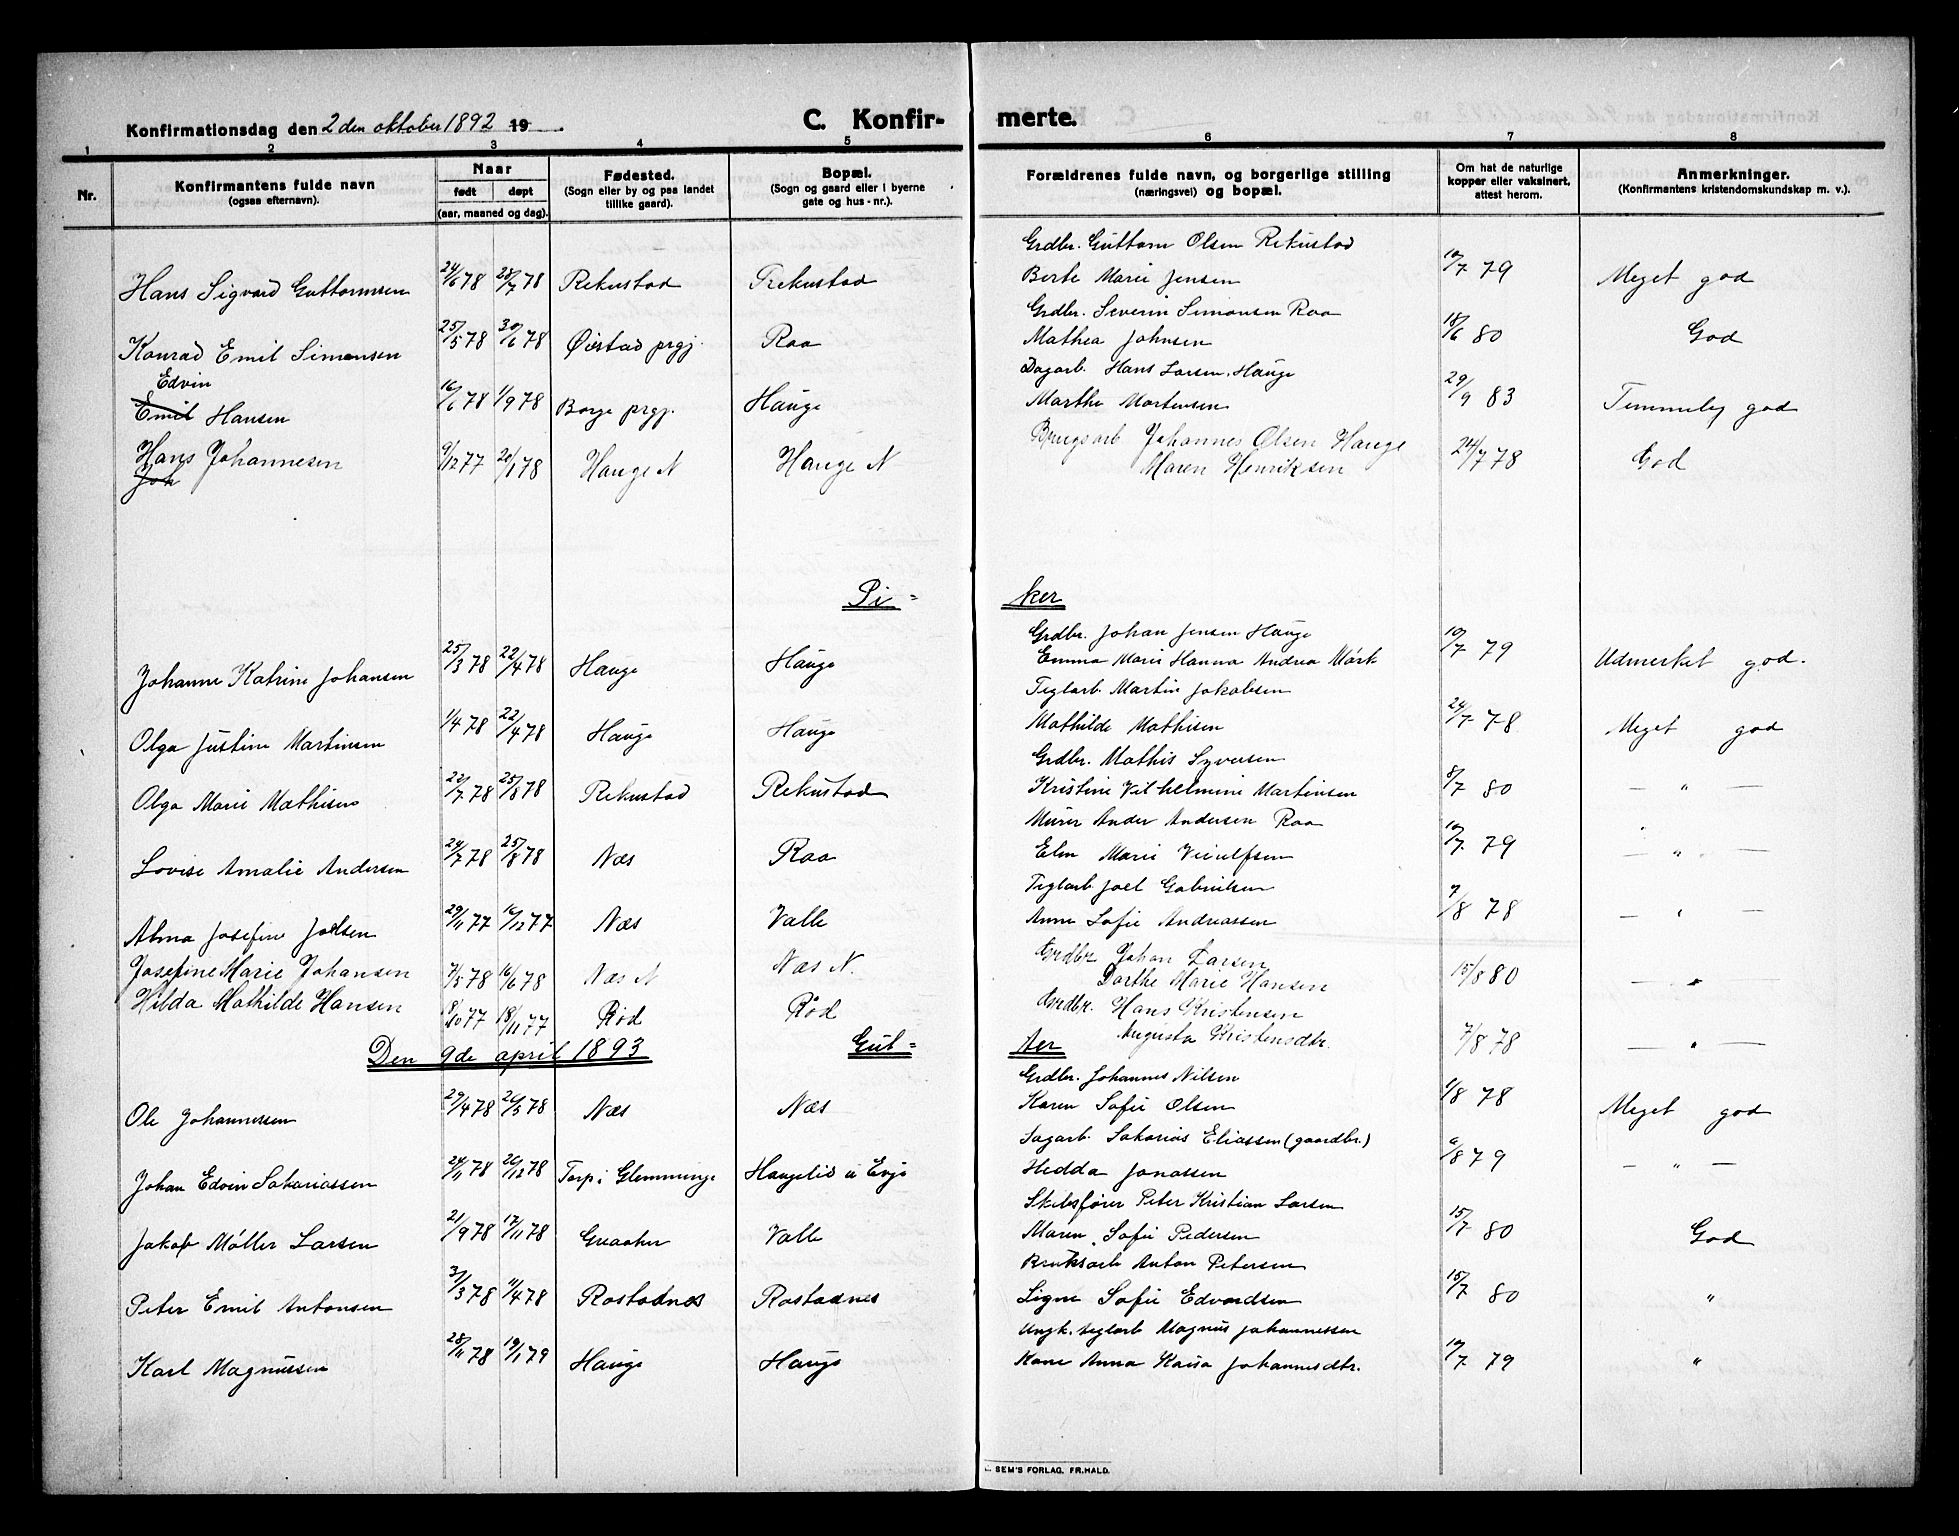 Konfirmationsdag den 2 den oktober 1892 19
C. Konfir- merte.
1 2 3 4 5 6 7 8
Nr. Konfirmantens fulde navn (ogsaa efternavn). Naar født døpt (aar, maaned og dag). Fødested. (Sogn eller by og paa landet tillike gaard). Bopæl. (Sogn og gaard eller i byerne gate og hus-nr.). Forældrenes fulde navn, og borgerlige stilling (næringsvei) og bopæl. Om hat de naturlige kopper eller vaksinert, attest herom. Anmerkninger. (Konfirmantens kristendomskundskap m. v.).
Grdbr. Guttorm Olsen Rekustad
Hans Sigvard Guttormsen 24/6 78 28/7 78 Rekustad Rekustad Berte Marie Jensen 10/7 79 Meget god
Grdbr. Severin Simonsen Raa
Konrad Emil Simonsen 25/5 78 30/6 78 Øistad prgj. Raa Mathea Johnsen 18/6 80 God
Dagarb. Hans Larsen, Hauge
Edvin
Emil Hansen 16/6 78 1/9 78 Borge prgj. Hauge Marthe Mortensen 29/9 83 Temmelig god
Brugsarb Johannes Olsen Hauge
Hans Johannesen 9/12 77 20/1 78 Hauge N Hauge N Maren Henriksen 24/7 78 God
Joh
Pi- ker
Grdbr. Johan Jensen Hauge
Johanne Katrine Johansen 25/3 78 22/4 78 Hauge Hauge Emma Marie Hanna Andrea Mørk 10/7 79 Udmerket god.
Teglarb. Martin Jakobsen
Olga Justine Martinsen 1/4 78 22/4 78 Hauge Hauge Mathilde Mathisen 24/7 78 Meget god
Grdbr. Mathis Syversen
Olga Marie Mathisen 22/7 78 25/8 78 Rekustad Rekustad Kristine Vilhelmine Martinsen 8/7 80 — " —
Murer Ander Andersen Raa
Lovise Amalie Andersen 24/7 78 25/8 78 Næs Raa Elen Marie 10/7 79 — " —
Teglarb Joel Gabrielsen
Alma Josefine Joelsen 29/11 77 16/12 77 Næs Valle Anne Sofie Andreassen 7/8 78 — " —
Grdbr Johan Larsen
Josefine Marie Johansen 7/5 78 16/6 78 Næs N Næs N. Dorthe Marie Hansen 15/8 80 — " —
Grdbr. Hans Kristensen
Hilda Mathilde Hansen 8/10 77 18/11 77 Rød Rød Augusta Kristensdtr. 7/8 78 — " —
Den 9de april 1893 Gut- ter
Grdbr. Johannes Nilsen
Ole Johannessen 29/4 78 26/5 78 Næs Næs Karen Sofie Olsen 1/8 78 Meget god
Sagarb. Sakarias Eliassen (gaardbr.)
Johan Edvin Sakariassen 24/11 78 26/12 78 Torp i Glemminge Haugelid u Evje Hedda Jonassen 6/8 79 — " —
Skibsfører Peter Kristian Larsen
Jakob Møller Larsen 21/9 78 17/11 78 Greaaker Valle Maren Sofie Pedersen 15/7 80 God
Bruksarb Anton Petersen
Peter Emil Antonsen 3/3 78 11/4 78 Rostadnes Rostadnes Signe Sofie Edvardsen 15/7 80 "
Ungk. teglarb Magnus Johannessen
Karl Magnussen 28/11 78 19/1 79 Hauge Hauge Kone Anna Kaisa Johannesdtr. 10/7 79 "
SEM'S FORLAG, FR.HALD.